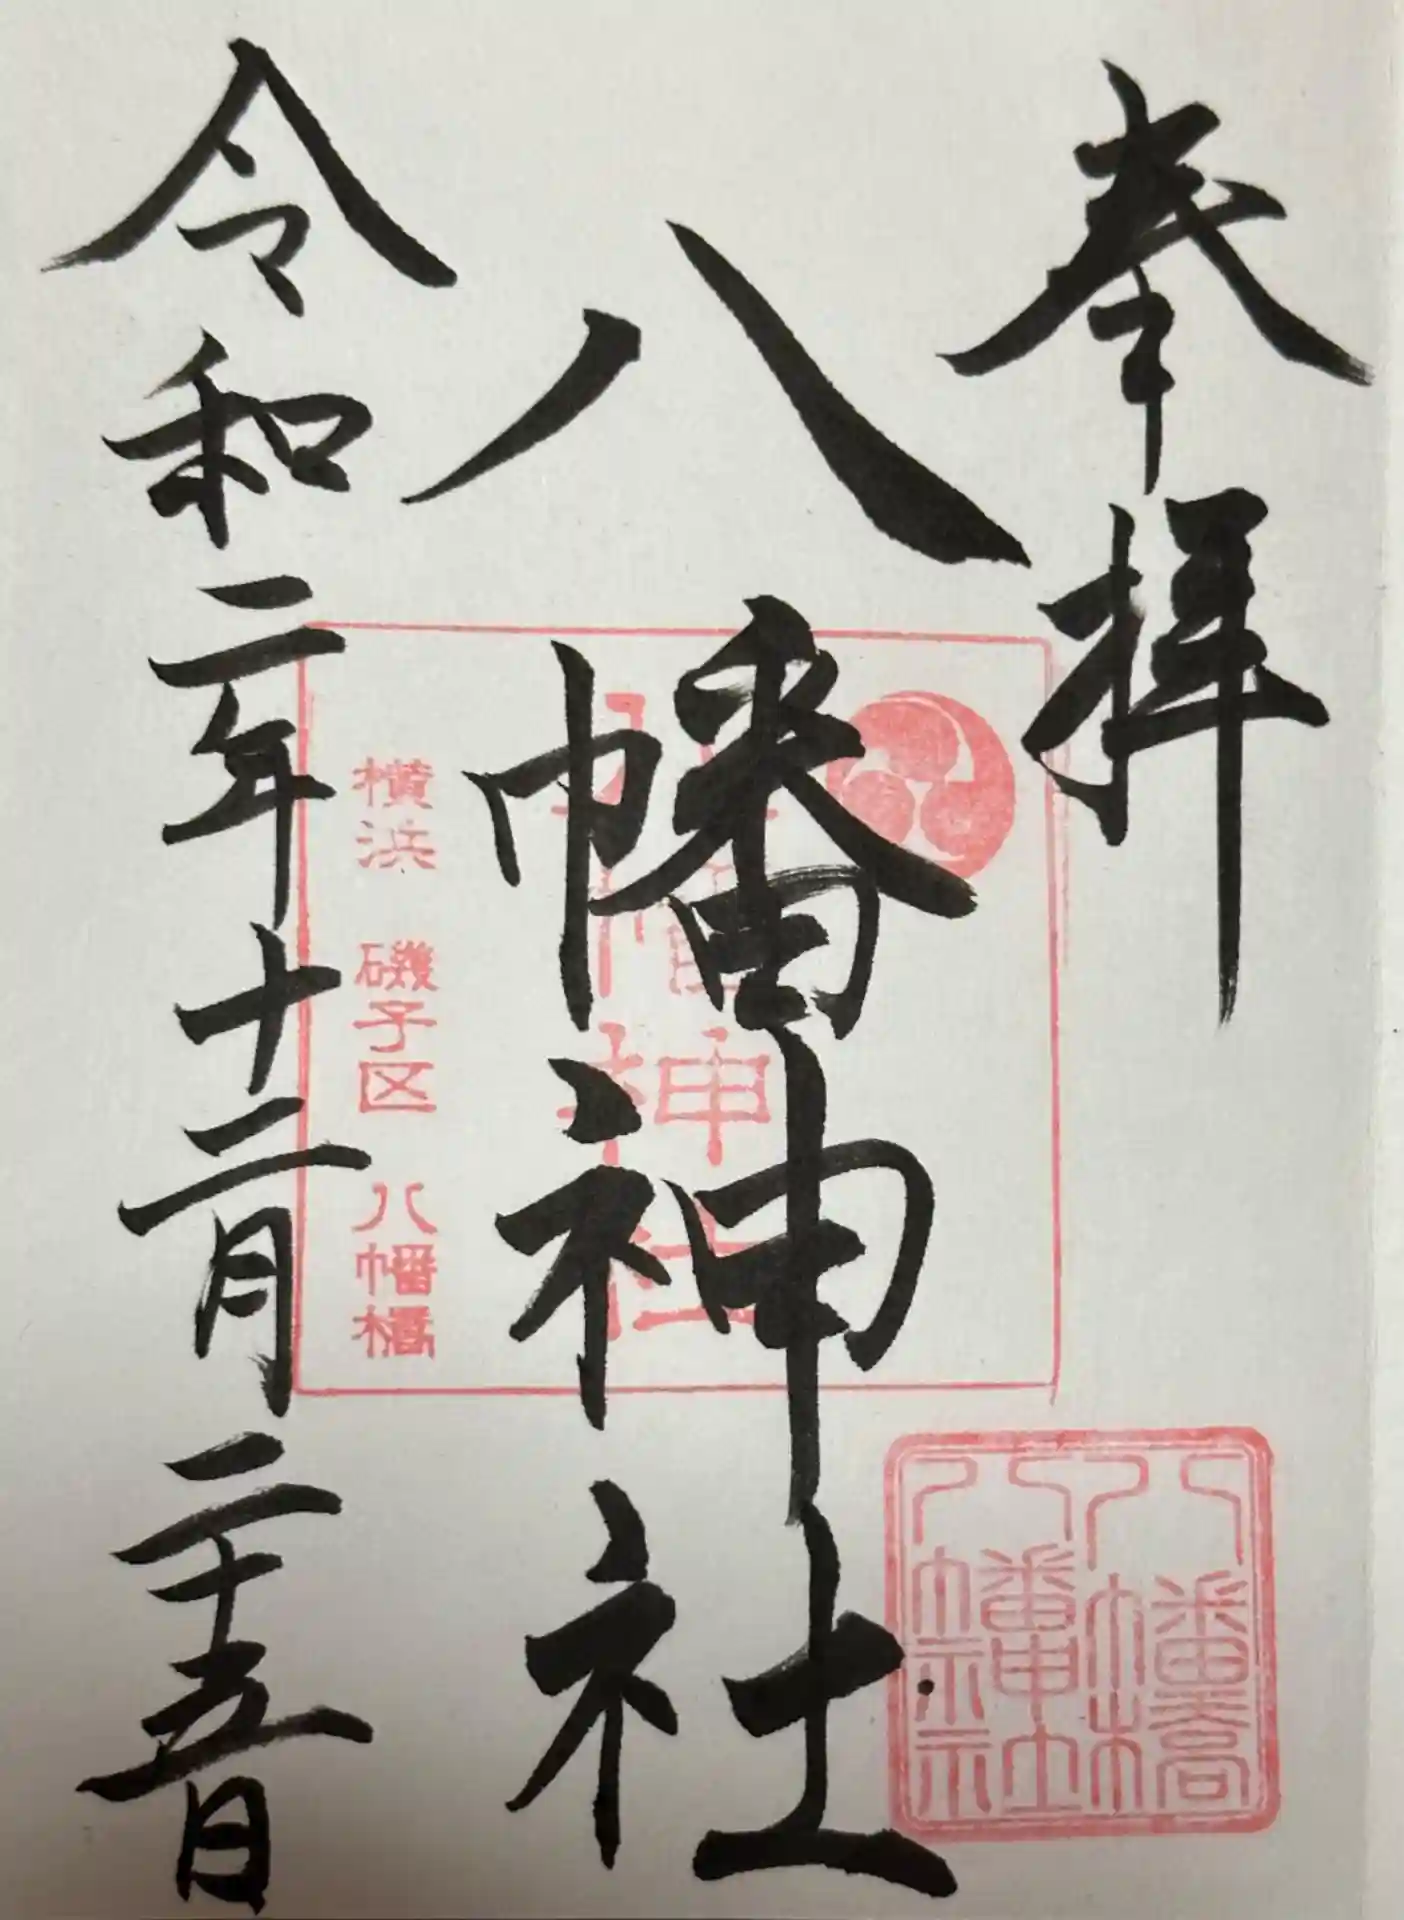 奉拝
八幡神社
八幡神社
横浜 磯子区 八幡橋
令和二年十二月二十五日
八幡橋
八幡神社